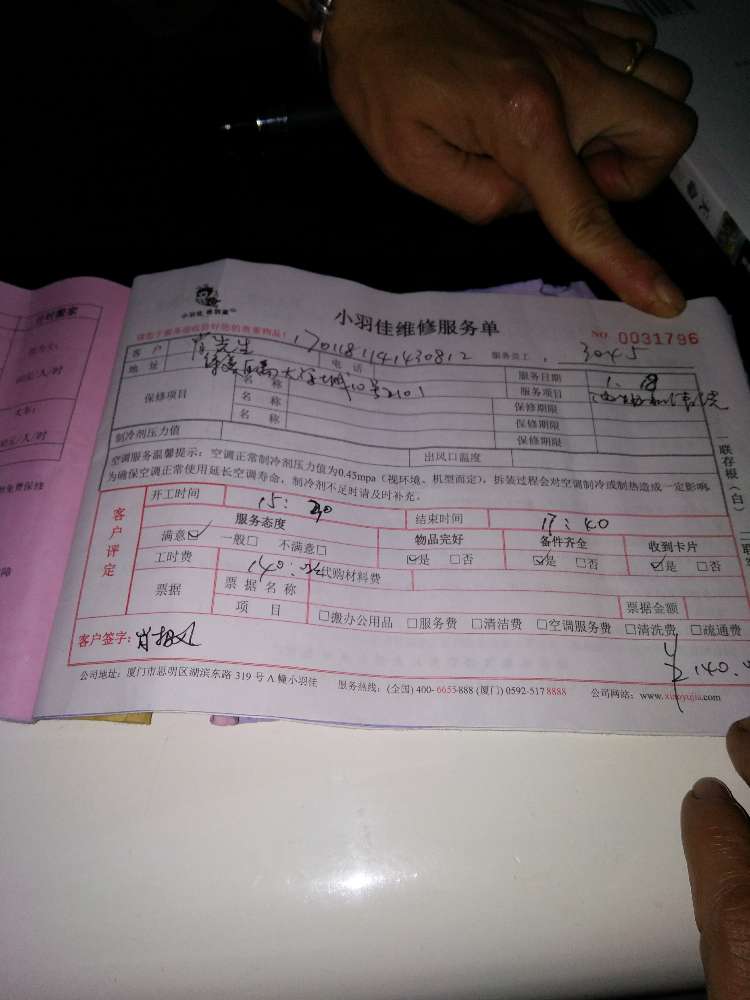 小羽佳维修服务单
NO 0031796
170118114143081 2
客户 肖先生 电话 服务员工: 3045
地址 10号2101 服务日期 1.18
保修项目 名称 服务项目
名称 保修期限
名称 保修期限
制冷剂压力值 出风口温度 保修期限
空调服务温馨提示:空调正常制冷剂压力值为0.45mpa(视环境、机型而定),拆装过程会对空调制冷或制热造成一定影响,
为确保空调正常使用延长空调寿命,制冷剂不足时请及时补充。
一联存根(白)
客户评定
开工时间 15:20 结束时间 17:40
服务态度 物品完好 备件齐全 收到卡片
满意☑ 一般□ 不满意□ ☑是 □否 ☑是 □否 ☑是 □否
工时费 140 代购材料费
票据 票据名称 票据金额
项目 □搬办公用品 □服务费 □清洁费 □空调服务费 □清洗费 □疏通费
客户签字:
公司地址:厦门市思明区湖滨东路 319 号 A 幢小羽佳 服务热线:(全国) 400-6653-888 (厦门) 0592-517 8888 公司网站:www.xiaoyujia.com